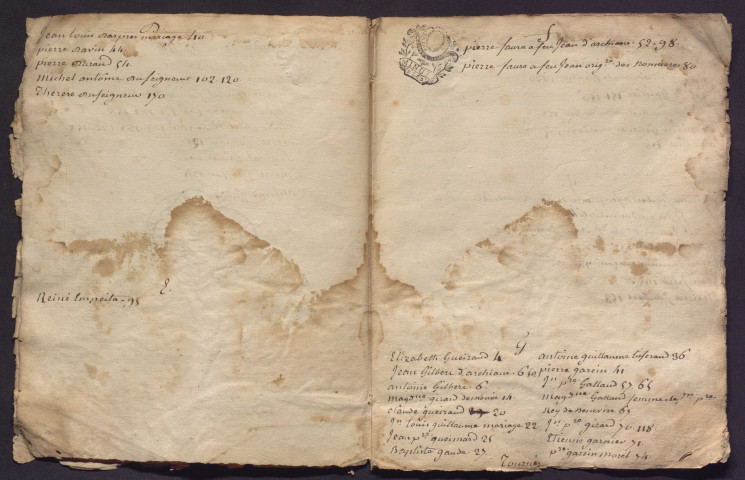 D
Jean Louis mariage 40
pierre Davin 44
pierre Durand 54
michel antoine Duseigneur 102. 120
Therese Duseigneur 130
E.
Reiné 95
F
pierre faure à feu Jean d'archiane. 52. 98.
pierre faure a feu Jean orig.re des nonnieres 80
G
Elizabeth Gueirand 4
Jean Gilbert d'archiane 6
antoine Gilbert. 6
magd.ne girard 14
claude gueirand 20
jn Louis guillaume mariage 22
Jean p.re gueimard 25
Baptiste gaude. 27.
antoine guillaume 36
pierre garcin 41
jn p.re Galland 57. 65
magd.ne Galland femme de jn p.re
Rey de 65
jn p.re girard 70. 118
Etienne garnier 71
p.re garcin moret 74
Tournés